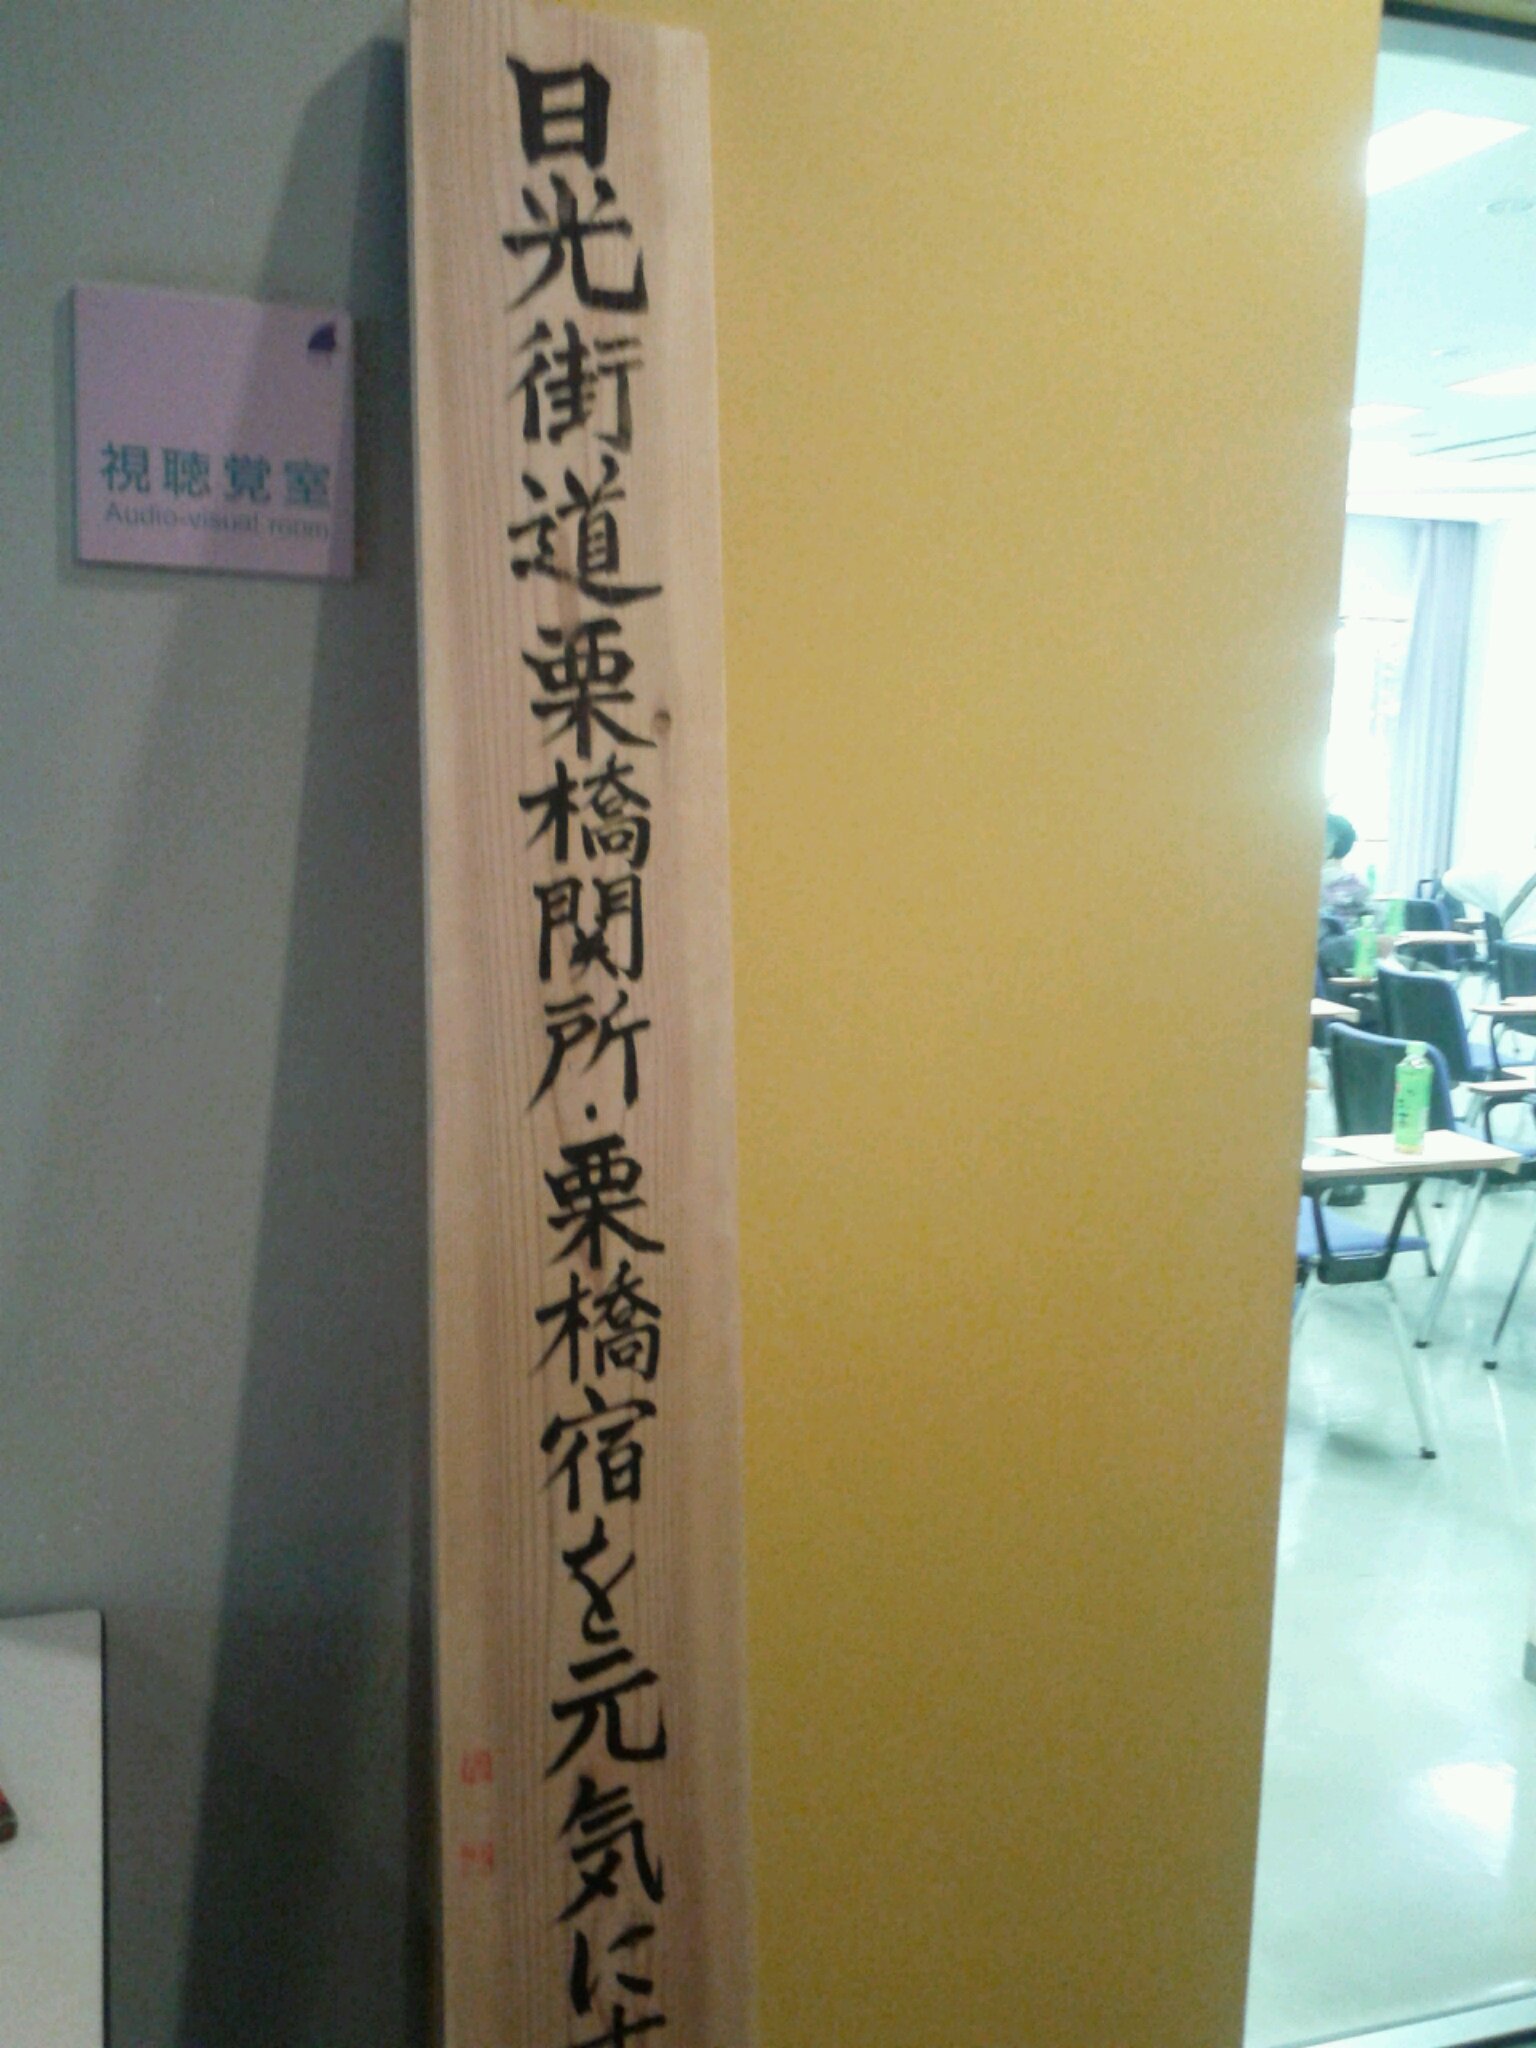 視聴覚室
Audio-visual room
日光街道栗橋関所・栗橋宿を元気にす